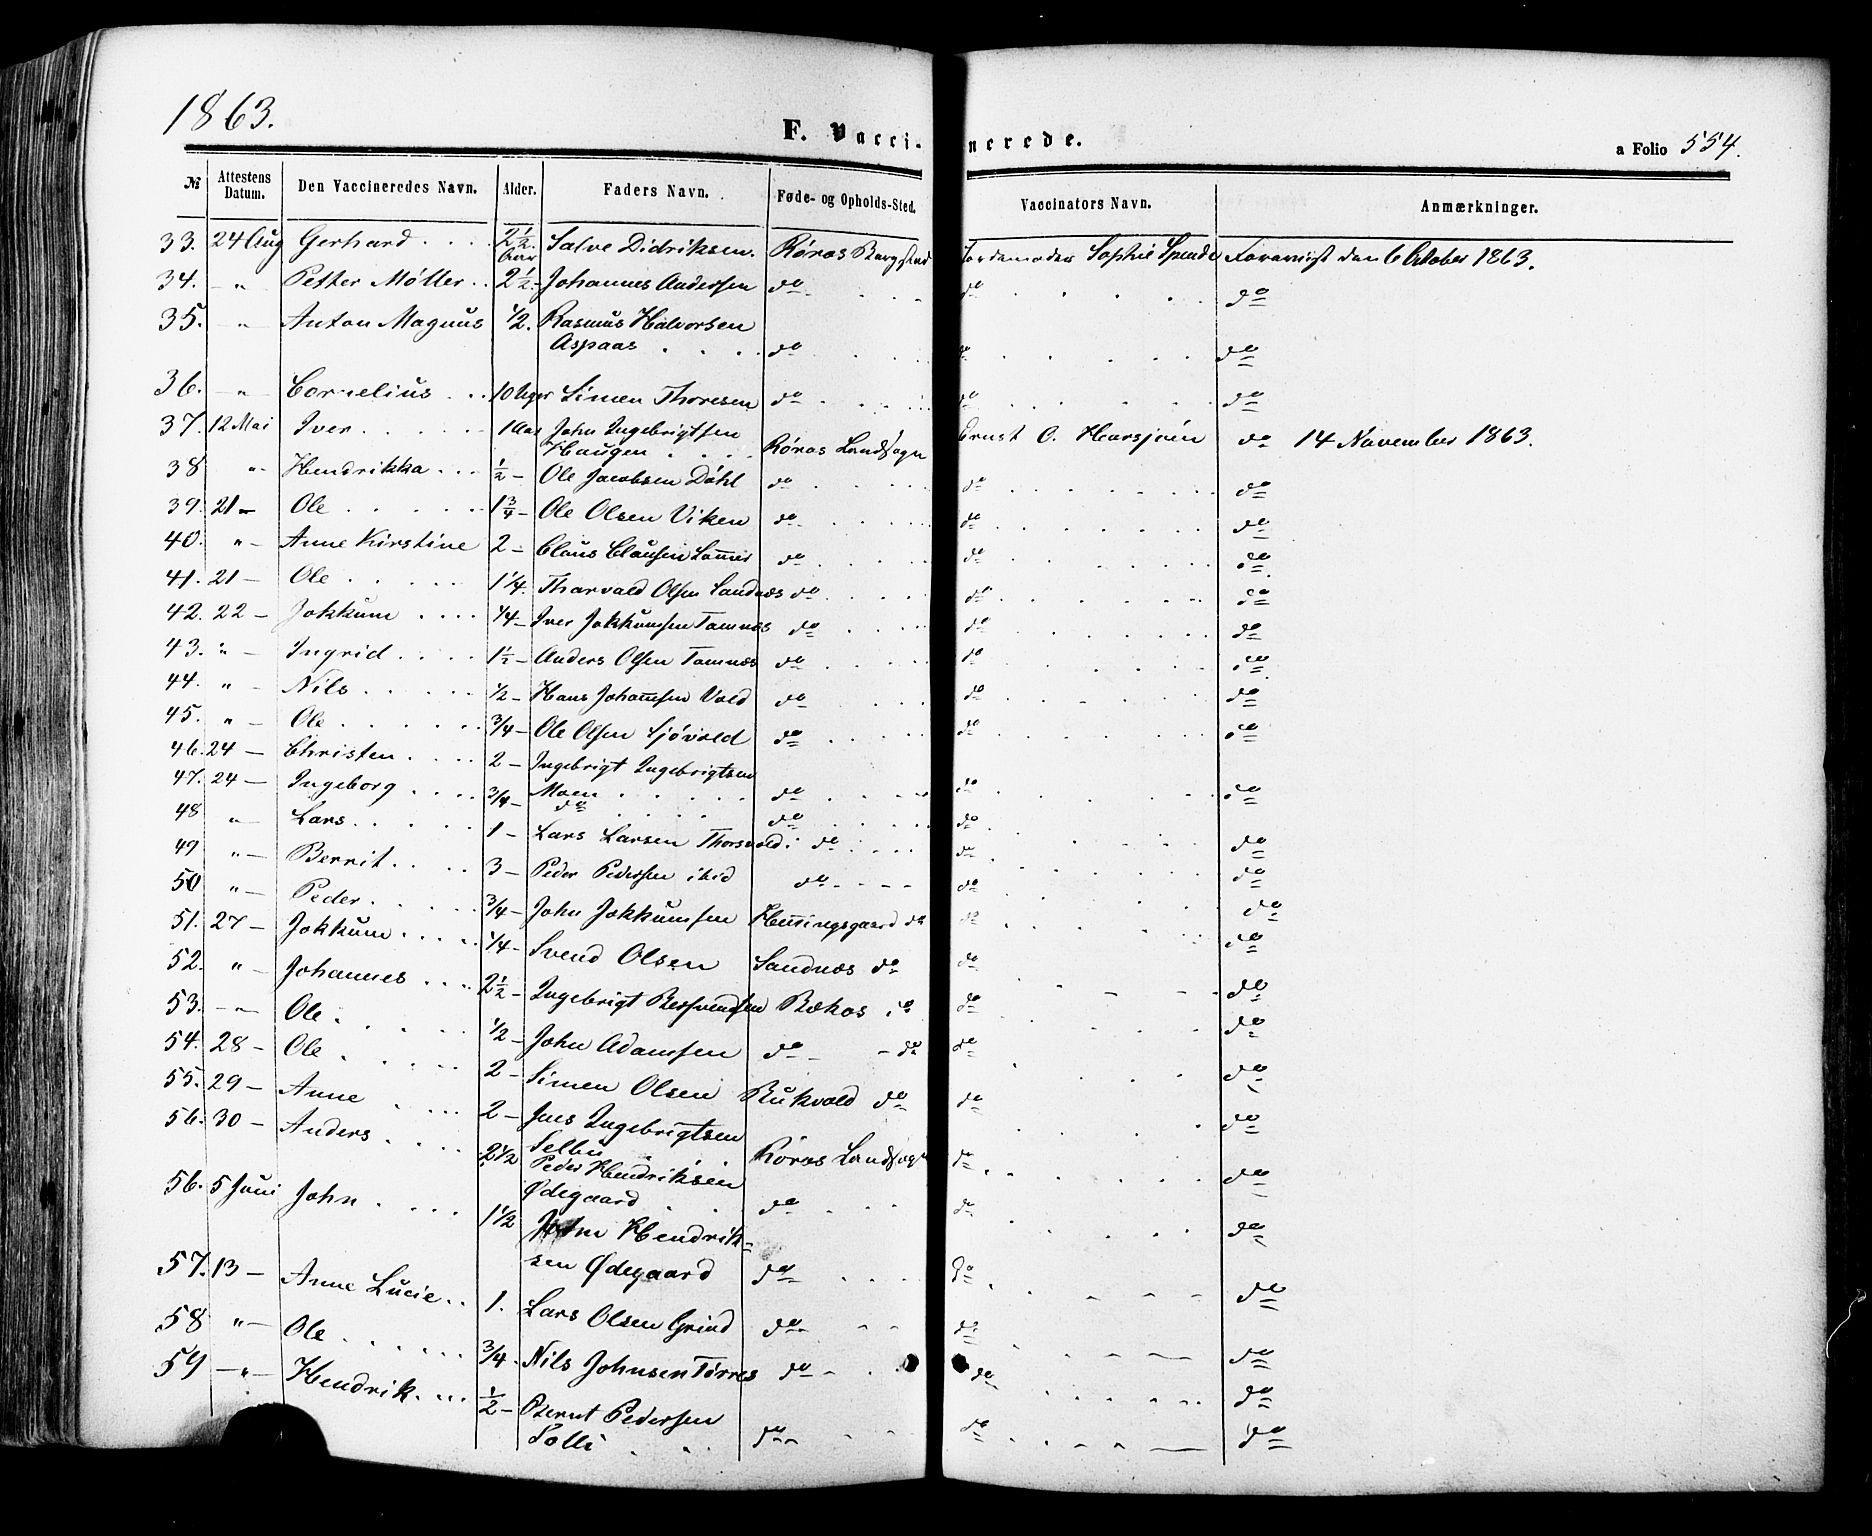 1863.
F. Vaccinerede.
a Folio 554.
№ Attestens Datum. Den Vaccineredes Navn. Alder. Faders Navn. Føde- og Opholds-Sted. Vaccinators Navn. Anmærkninger.
33. 24 Aug Gerhard 2½ Aar Salve Didriksen. Røros Bergstad Jordemoder Sophie Foreviist den 6 Oktober 1863.
34. " Petter Møller 2½ Johannes Andersen do do do
35. " Anton Magnus ½. Rasmus Halvorsen
Aspaas do do do
36. " Cornelius 10 Uger Simen Thoresen do do do
37. 12 Mai Iver 1 Aar John Ingebrigtsen
Haugen Røros Landsogn Ernst O. Harsjøen do 14 November 1863.
38 " Hendrikka ½ – Ole Jacobsen Dahl do do do
39. 21 – Ole 1¾ – Ole Olsen Viken do do do
40. " – Anne Kirstine 2 – Claus Clausen do do do
41. 21 – Ole 1¼. Tharvald Olsen Sandnæs do do do
42. 22 – Jokkum ¼ – Iver Jokkumsen Tamnæs do do do
43. " – Ingrid 1½ – Anders Olsen Tamnæs do do do
44. " – Nils ½ – Hans Johannsen Vold do do do
45. " – Ole ¾ – Ole Olsen Sjøvold do do do
46. 24 – Christen 2 – Ingebrigt Ingebrigtsen
Moen do do do
47. 24 – Ingeborg ¾ – do do do
48 " – Lars 1 – Lars Larsen Thorsvold do do do
49 " – Berrit 3 – Peder Pedersen ibid do do do
50 " – Peder ¾ – John Jokkumsen Henningsgaard do do do
51. 27 – Jokkum ¼ – Svend Olsen Sandnæs do do do
52. " – Johannes 2½ – Ingebrigt Bersvendsen Bækos do do do
53. – " – Ole ½ – John Adamsen do – do do do
54. 28 – Ole 2 – Simen Olsen Rukvold do do do
55. 29 – Anne 2 – Jens Ingebrigtsen
Selbu Røros Landsogn do do
56. 30 – Anders 2½ Peder Hendriksen
Ødegaard do do do
56. 5 Juni John 1½ John Hendrik=
sen Ødegaard do do do
57. 13 – Anne Lucie 1. Lars Olsen Grind do do do
58 " – Ole ¾. Nils Johnsen Tørres do do do
59 – " – Hendrik ½ – Bernt Pedersen
Solli do do do